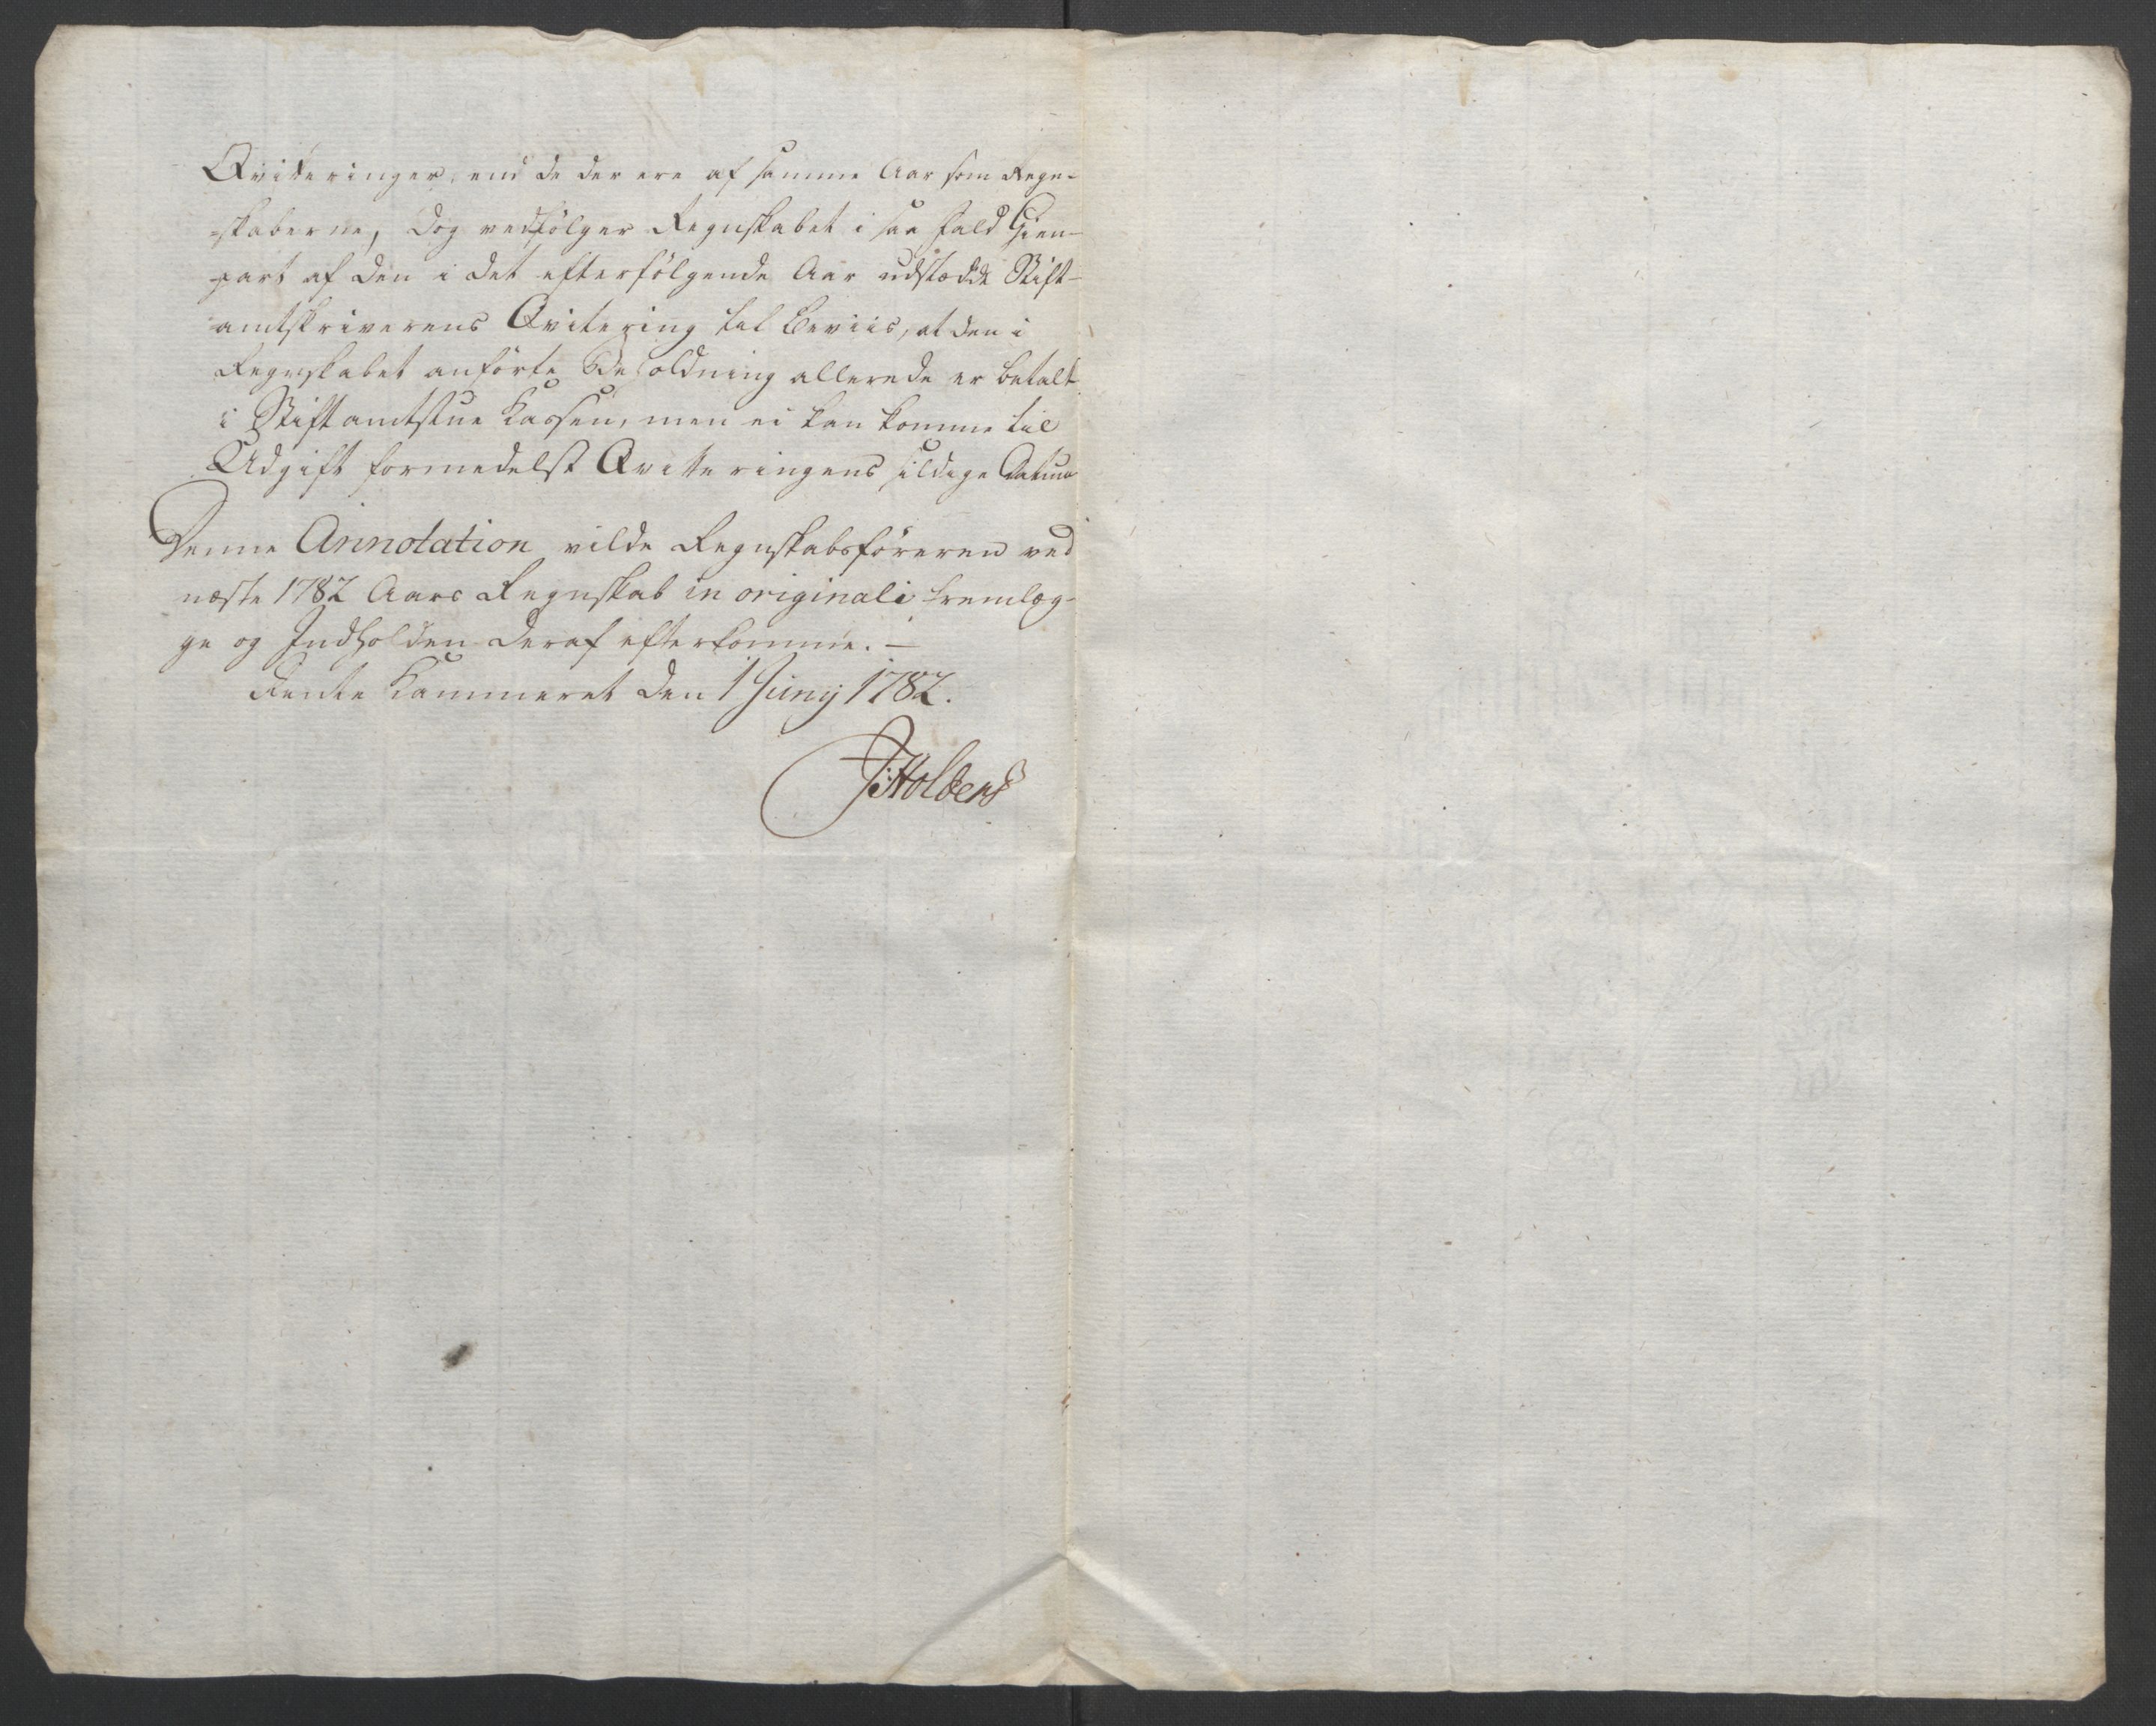 Qviteringer, end de der ere af samme Aar som Regn-
-skaberne, dog vedfölger Regnskabet i saa fald Gien-
part af den i det efterfölgende Aar udstædde Stift-
amtskriverens Qvitering til Beviis, at den i
Regnskabet anförte Beholdning allerede er betalt
i Stiftamtstue Kassen, men ei kan komme til
Udgift formedelst Qvitteringens sildige Datum
Denne Annotation vilde Regnskabsföreren ved
næste 1782 Aars Regnskab in originali fremlæg-
ge og Indholden deraf efterkomme. —
Rente Kammeret den 1 Junij 1782.